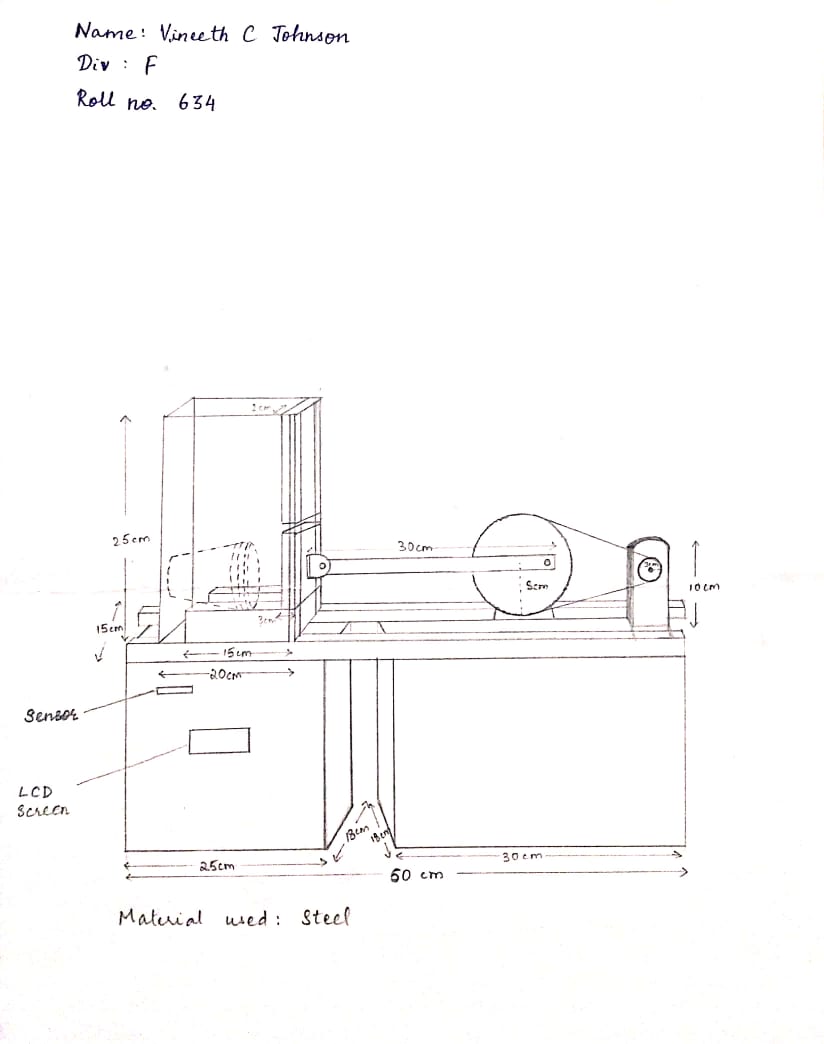 Name: Vineeth C Johnson
Div : F
Roll no. 634
2cm
25cm
30cm
3cm
5cm
10cm
15cm
3cm
15cm
20cm
Sensor
LCD
Screen
18cm
18cm
30cm
25cm
60 cm
Material used: Steel